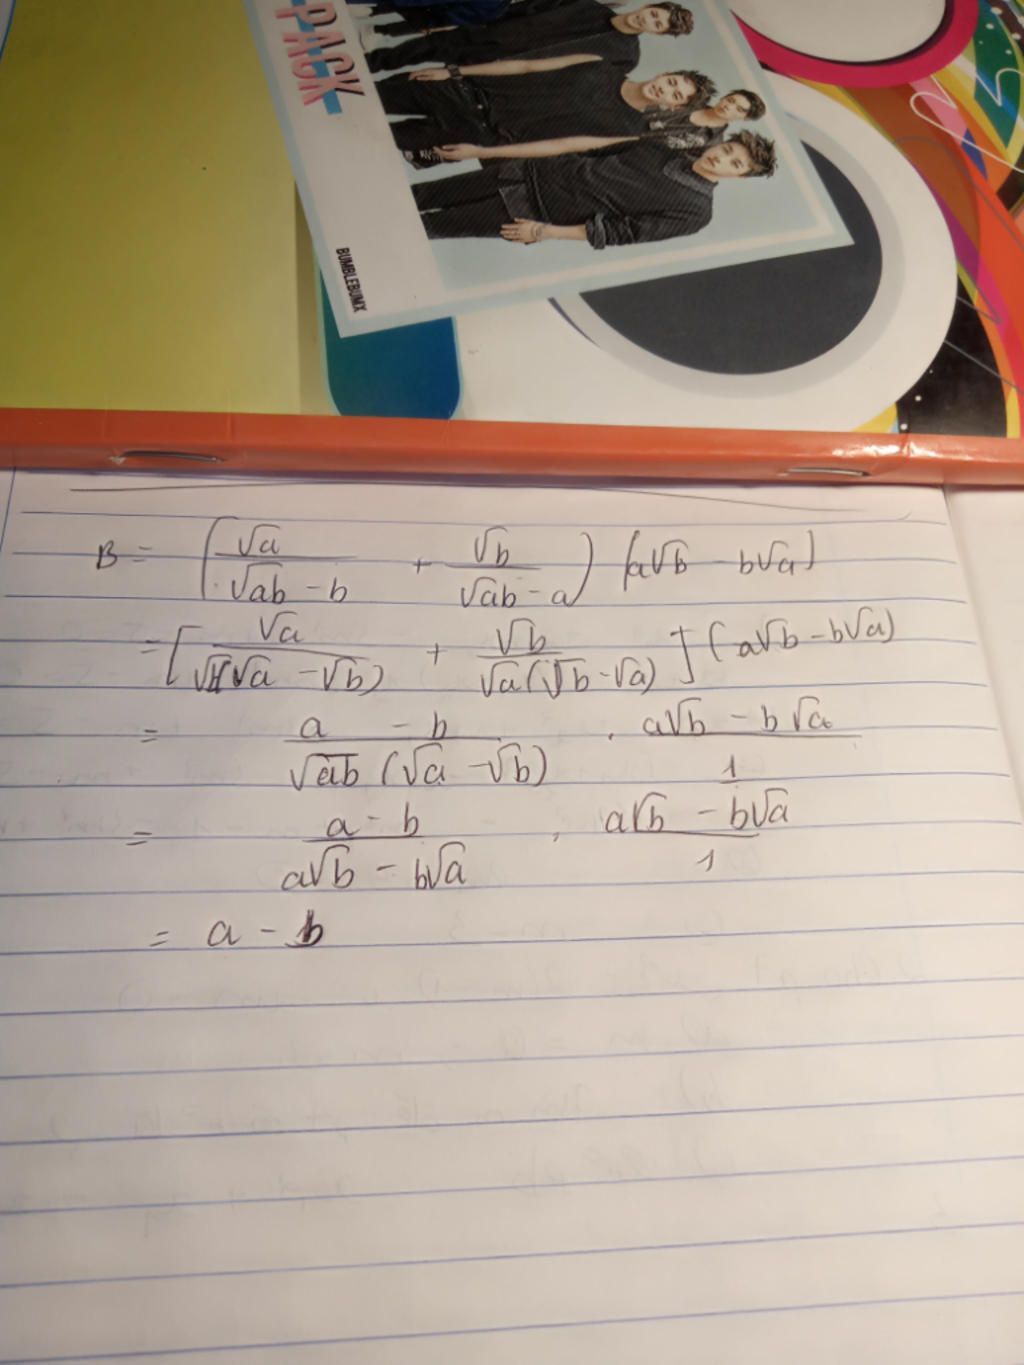 PACK
BUMBLEBUMX
B = (√a/(√ab - b) + √b/(√ab - a)) (a√b - b√a)
= [√a/(√b(√a - √b)) + √b/(√a(√b - √a))] (a√b - b√a)
= (a - b)/(√ab (√a - √b)) . (a√b - b√a)/1
= (a - b)/(a√b - b√a) . (a√b - b√a)/1
= a - b